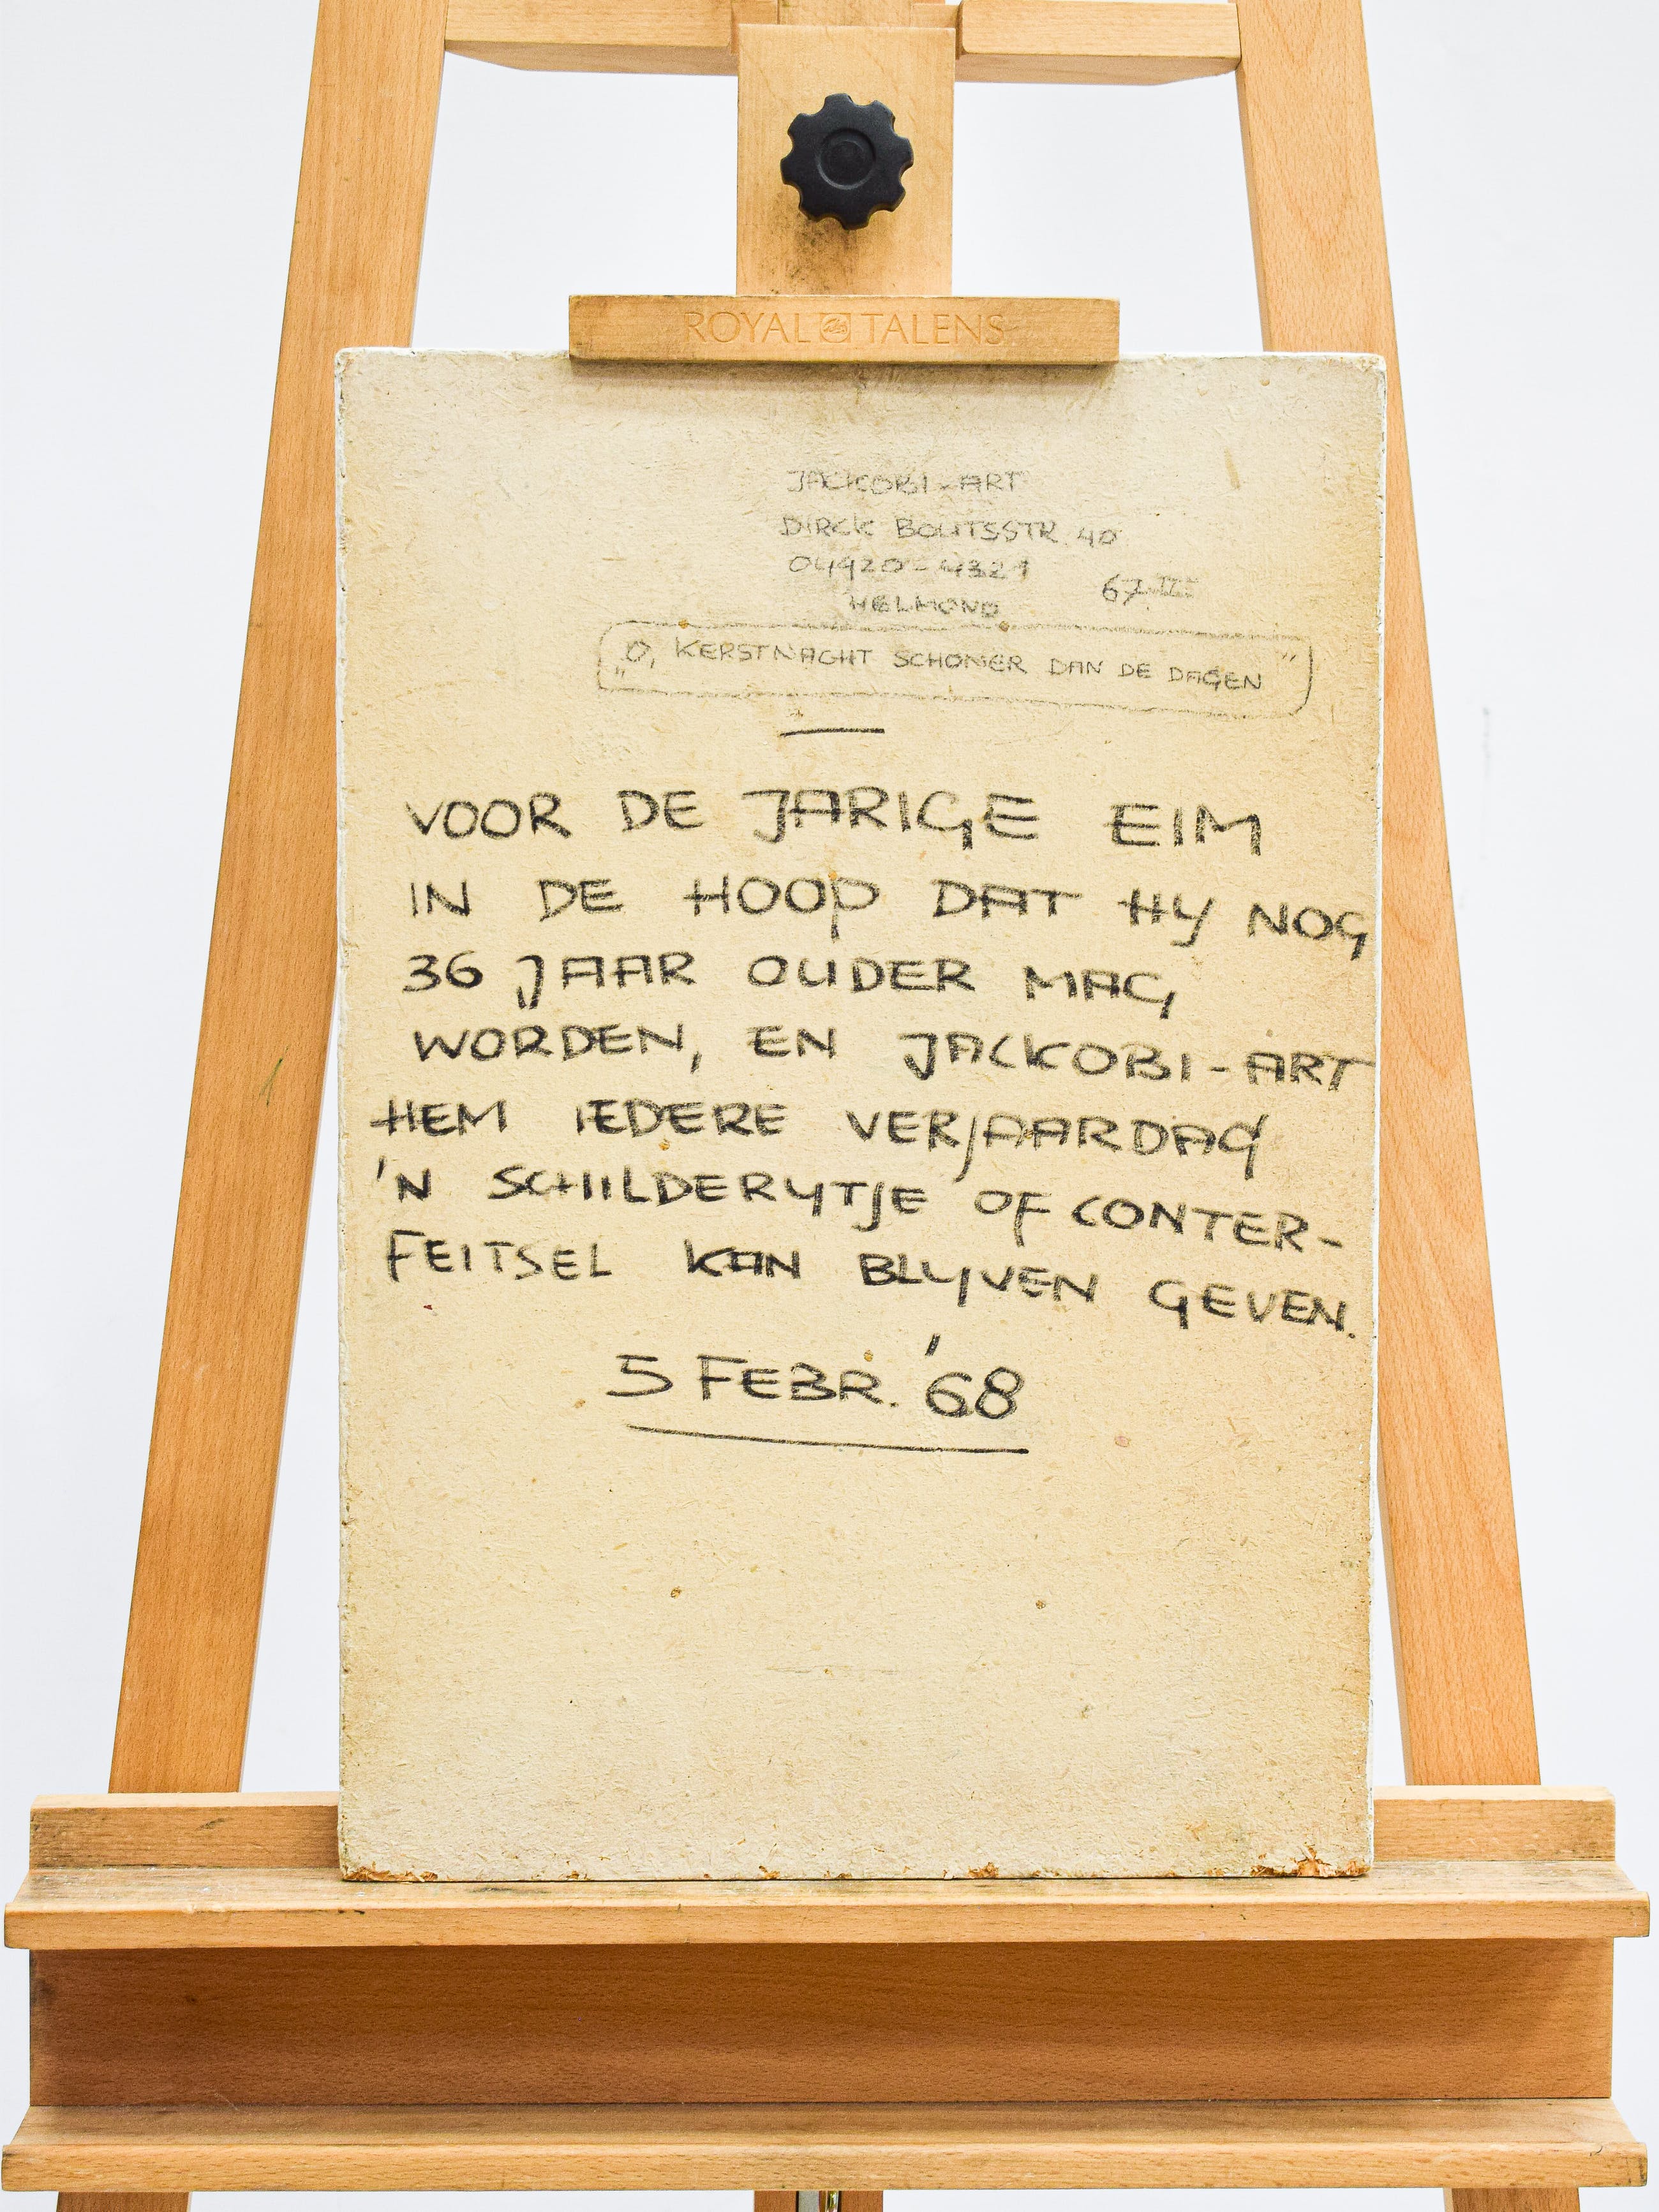 ROYAL TALENS
JACKOBI-ART
DIRCK BOUTSSTR. 40
04920-4321
HELMOND
67
„O, KERSTNACHT SCHONER DAN DE DAGEN”
VOOR DE JARIGE EIM
IN DE HOOP DAT HY NOG
36 JAAR OUDER MAG
WORDEN, EN JACKOBI-ART
HEM IEDERE VERJAARDAG
'N SCHILDERYTJE OF CONTER-
FEITSEL KAN BLYVEN GEVEN.
5 FEBR. '68